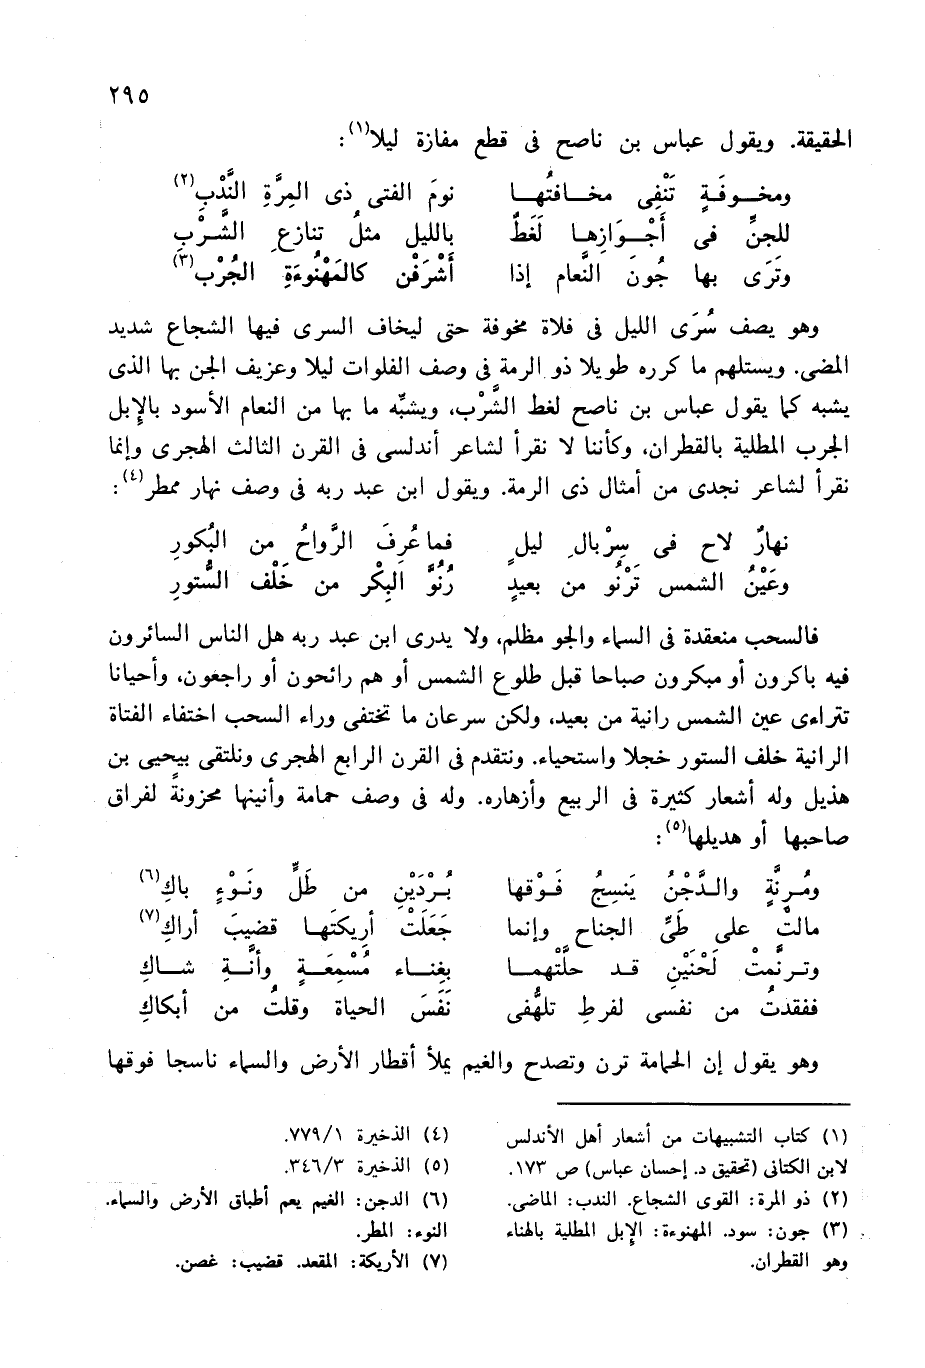 ٢٩٥
الحقيقة. ويقول عباس بن ناصح فى قطع مفازة ليلا(١):
ومخـوفَـةٍ تَنْفِى مخـافتُهـا نومَ الفتى ذى المِرَّةِ النَّدْبِ(٢)
للجنِّ فى أَجْـوَازِهـا لَغَطٌ بالليل مثلُ تنازعِ الشَّرْبِ
وتَرَى بها جُونَ النَّعام إذا أَشْرَفْن كالمَهْنُوءَةِ الجُرْب(٣)
وهو يصف سُرَى الليل فى فلاة مخوفة حتى ليخاف السرى فيها الشجاع شديد
المضى. ويستلهم ما كرره طويلا ذو الرمة فى وصف الفلوات ليلا وعزيف الجن بها الذى
يشبه كما يقول عباس بن ناصح لغط الشَّرْب، ويشبِّه ما بها من النعام الأسود بالإبل
الجرب المطلية بالقطران، وكأننا لا نقرأ لشاعر أندلسى فى القرن الثالث الهجرى وإنما
نقرأ لشاعر نجدى من أمثال ذى الرمة. ويقول ابن عبد ربه فى وصف نهار ممطر(٤):
نهارٌ لاح فى سِرْبالِ ليلٍ فما عُرِفَ الرَّواحُ من البُكورِ
وعَيْنُ الشمس تَرْنُو من بعيدٍ رُنُوَّ البِكْر من خَلْف السُّتورِ
فالسحب منعقدة فى السماء والجو مظلم، ولا يدرى ابن عبد ربه هل الناس السائرون
فيه باكرون أو مبكرون صباحا قبل طلوع الشمس أو هم رائحون أو راجعون، وأحيانا
تتراءى عين الشمس رانية من بعيد، ولكن سرعان ما تختفى وراء السحب اختفاء الفتاة
الرانية خلف الستور خجلا واستحياء. ونتقدم فى القرن الرابع الهجرى ونلتقى بيحيى بن
هذيل وله أشعار كثيرة فى الربيع وأزهاره. وله فى وصف حمامة وأنينها محزونةً لفراق
صاحبها أو هديلها(٥):
ومُـرِنَّةٍ والـدَّجْنُ يَنسِجُ فَـوْقها بُـرْدَيْنِ من طَلٍّ ونَـوْءٍ باكِ(٦)
مالتْ على طَيِّ الجناح وإنما جَعَلَتْ أريكتَهـا قضيبَ أراكِ(٧)
وتـرنَّمتْ لَحْنَيْنِ قـد حلَّتْهمـا بغِنـاء مُسْمِعَـةٍ وأنَّـةِ شـاكِ
ففقدتُ من نفسى لفرطِ تلهُّفى نَفَسَ الحياة وقلتُ من أبكاكِ
وهو يقول إن الحمامة ترن وتصدح والغيم يملأ أقطار الأرض والسماء ناسجا فوقها
(١) كتاب التشبيهات من أشعار أهل الأندلس
لابن الكتانى (تحقيق د. إحسان عباس) ص ١٧٣.
(٢) ذو المرة: القوى الشجاع. الندب: الماضى.
(٣) جون: سود. المهنوءة: الإبل المطلية بالهناء
وهو القطران.
(٤) الذخيرة ٧٧٩/١.
(٥) الذخيرة ٣٤٦/٣.
(٦) الدجن: الغيم يعم أطباق الأرض والسماء.
النوء: المطر.
(٧) الأريكة: المقعد. قضيب: غصن.